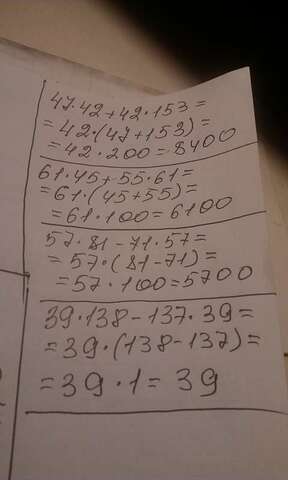 47·42+42·153=
=42·(47+153)=
=42·200=8400
61·45+55·61=
=61·(45+55)=
=61·100=6100
57·81-71·57=
=57·(81-71)=
=57·100=5700
39·138-137·39=
=39·(138-137)=
=39·1=39